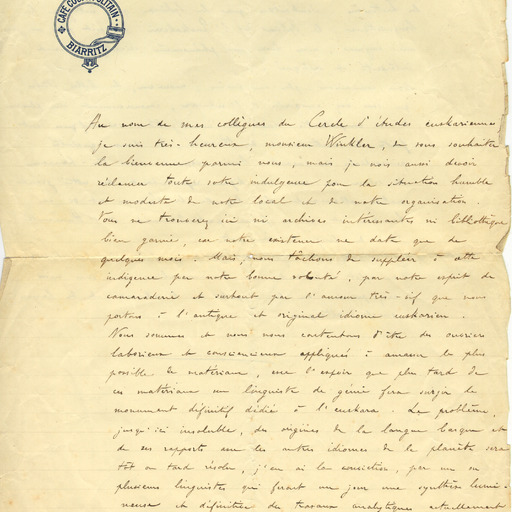 CAFÉ COSMOPOLITAIN
BIARRITZ
Au nom de mes collègues du Cercle d'études euskariennes
je suis très-heureux, monsieur Winkler, de vous souhaiter
la bienvenue parmi nous, mais je vois aussi devoir
réclamer toute votre indulgence pour la situation humble
et modeste de notre local et de notre organisation.
Vous ne trouverez ici ni archives intéressantes ni bibliothèque
bien garnie, car notre existence ne date que de
quelques mois. Mais, nous tâchons de suppléer à cette
indigence par notre bonne volonté, par notre esprit de
camaraderie et surtout par l'amour très-vif que nous
portons à l'antique et original idiome euskarien.
Nous sommes et nous nous contentons d'être des ouvriers
laborieux et consciencieux appliqués à amasser le plus
possible de matériaux, avec l'espoir que plus tard de
ces matériaux un linguiste de génie fera surgir le
monument définitif dédié à l'euskara. Le problème,
jusqu'ici insoluble, des origines de la langue basque et
de ses rapports avec les autres idiomes de la planète sera
tôt ou tard résolu, j'en ai la conviction, par un ou
plusieurs linguistes qui feront un jour une synthèse lumi-
neuse et définitive des travaux analytiques actuellement